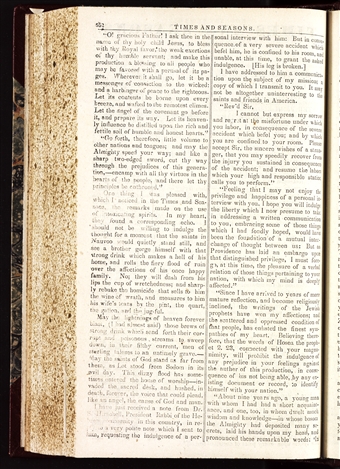 TIMES AND SEASONS.
"O! gracious Father! I ask thee in the
name of thy holy child Jesus, to bless
with thy Royal favor, the weak exertions
of thy humble servant; and make this
production a blessing to all people who
may be favored with a perusal of its pa-
ges. Wherever it shall go, let it be a
messenger of conviction to the wicked;
and a harbinger of peace to the righteous.
Let its contents be borne upon every
breeze, and wafted to the remotest climes.
Let the angel of the covenant go before
it, and prepare its way. Let its heaven-
ly influence be distilled upon the rich and
fertile soil of humble and honest hearts."
"Go forth, therefore, little volume to
other nations and tongues; and may the
Almighty speed your way; and like a
sharp two-edged sword, cut thy way
through the prejudices of this genera-
tion,—encamp with all thy virtues in the
hearts of the people, and there let thy
principles be enthroned."
One thing I was pleased with,
which I noticed in the Times and Sea-
sons, the remarks made on the use
of spirits. In my heart,
they found a corresponding echo. I
should not be willing to indulge the
thought for a moment that the saints in
Nauvoo could quietly stand still, and
see a brother gorge himself with that
strong drink which makes a hell of his
home, and rolls the fiery flood of ruin
over the affections of his once happy
family. No; they will dash from his
lips the cup of wretchedness; and sharp-
ly rebuke the homicide that sells to him
the wine of wrath, and measures to him
his wife's tears by the pint, the quart,
the gallon, and the jug-ful.
May the lightnings of heaven forever
(I had almost said) those brews of
strong drink which send forth their cor-
rupt and poisonous streams to sweep
down, in their filthy current, men of
sterling talents to an untimely grave.—
May the saints of God stand as far from
these, as Lot stood from Sodom in its
evil day. This slimy flood has some-
times entered the house of worship—in-
vaded the sacred desk, and hushed, in
death, forever, the voice that could plead,
like an angel, the cause of God and man.
I have just received a note from Dr.
President Rabbi of the He-
in this country, in re-
ply to a very polite note which I sent to
him, requesting the indulgence of a per-
sonal interview with him: But in conse-
quence of a very severe accident which
befel him, he is confined to his room, and
unable, at this time, to grant the asked
indulgence. [His leg is broken.]
I have addressed to him a communica-
tion upon the subject of my mission; a
copy of which I transmit to you. It may
not be altogether uninteresting to the
saints and friends in America.
"Rev'd Sir,
I cannot but express my sorrow
and regret at the misfortune under which
you labor, in consequence of the severe
accident which befel you; and by which
you are confined to your room. Please
accept Sir, the sincere wishes of a stran-
ger, that you may speedily recover from
the injury you sustained in consequence
of the accident; and resume the labors
which your high and responsible station
calls you to perform."
"Feeling that I may not enjoy the
privilege and happiness of a personal in-
terview with you, I hope you will indulge
the liberty which I now presume to take
in addressing a written communication
to you, embracing some of those things
which I had fondly hoped, would have
been the foundation of a mutual inter-
change of thought between us: But as
Providence has laid an embargo upon
that distinguished privilege, I must fore-
go, at this time, the pleasure of a verbal
relation of those things pertaining to your
nation, with which my mind is deeply
affected."
"Since I have arrived to years of more
mature reflection, and become religiously
inclined, the writings of the Jewish
prophets have won my affections; and
the scattered and oppressed condition of
that people, has enlisted the finest sym-
pathies of my heart. Believing there-
fore, that the words of Hosea the proph-
et 2, 23, connected with your magna-
nimity, will prohibit the indulgence of
any prejudice in your feelings against
the author of this production, in conse-
quence of his not being able, by any ex-
isting document or record, to identify
himself with your nation."
"About nine years ago, a young man
with whom I had had a short acquaint-
ance, and one, too, in whom dwelt much
wisdom and knowledge—in whose bosom
the Almighty had deposited many se-
crets, laid his hands upon my head, and
pronounced these remarkable words: